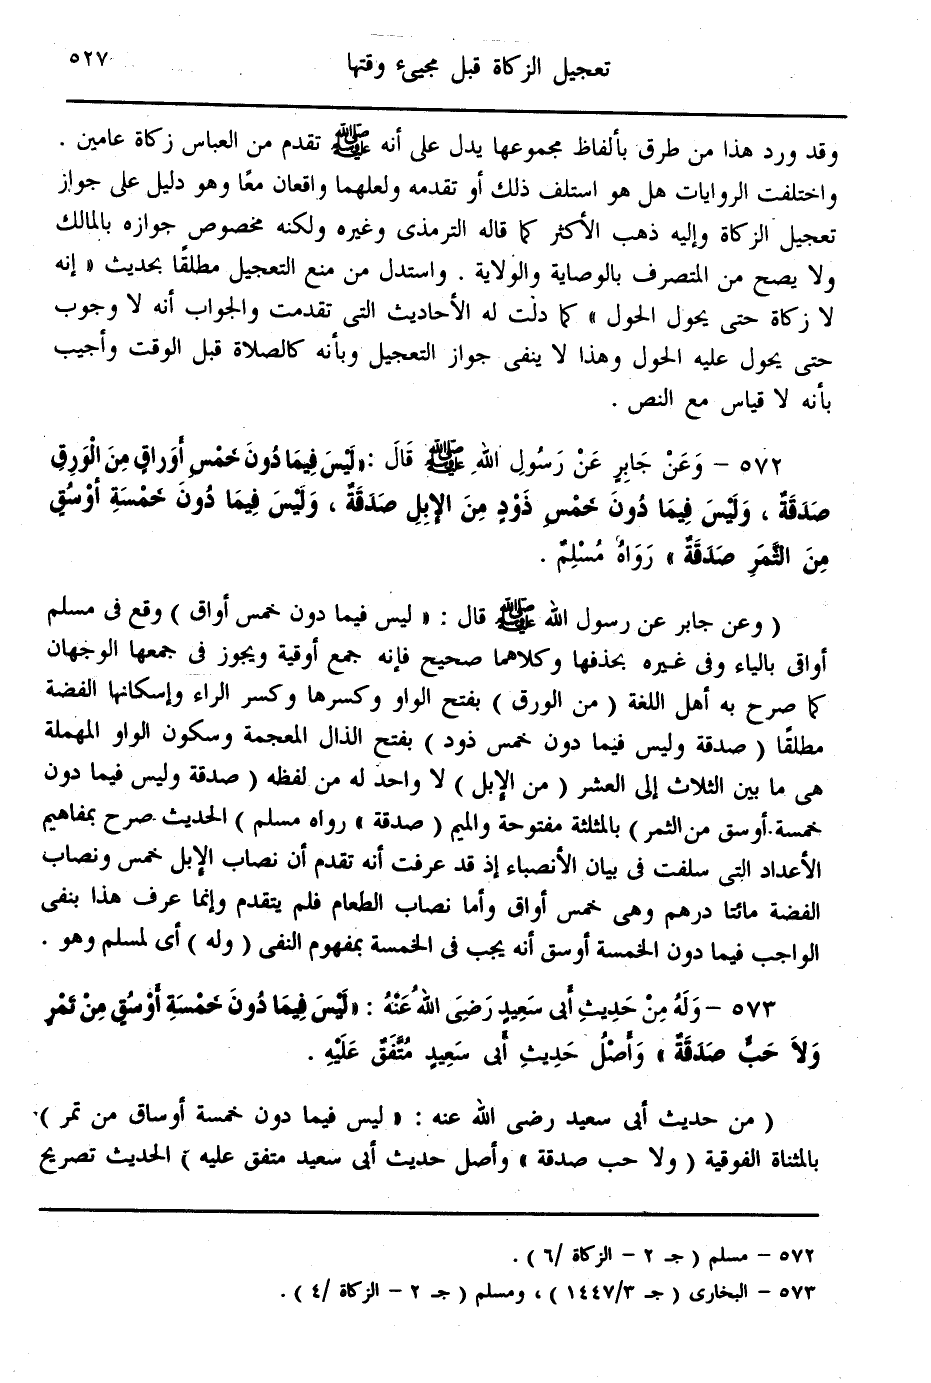 تعجيل الزكاة قبل مجيىء وقتها
٥٢٧
وقد ورد هذا من طرق بألفاظ مجموعها يدل على أنه ﷺ تقدم من العباس زكاة عامين .
واختلفت الروايات هل هو استلف ذلك أو تقدمه ولعلهما واقعان معًا وهو دليل على جواز
تعجيل الزكاة وإليه ذهب الأكثر كما قاله الترمذى وغيره ولكنه مخصوص جوازه بالمالك
ولا يصح من المتصرف بالوصاية والولاية . واستدل من منع التعجيل مطلقًا بحديث « إنه
لا زكاة حتى يحول الحول » كما دلت له الأحاديث التى تقدمت والجواب أنه لا وجوب
حتى يحول عليه الحول وهذا لا ينفى جواز التعجيل وبأنه كالصلاة قبل الوقت وأجيب
بأنه لا قياس مع النص .
٥٧٢ – وَعَنْ جَابِرٍ عَنْ رَسُولِ اللهِ ﷺ قَالَ : «لَيْسَ فِيمَا دُونَ خَمْسِ أَوَراقٍ مِنَ الْوَرِقِ
صَدَقَةٌ ، وَلَيْسَ فِيمَا دُونَ خَمْسِ ذَوْدٍ مِنَ الإِبِلِ صَدَقَةٌ ، وَلَيْسَ فِيمَا دُونَ خَمْسَةِ أوْسُقٍ
مِنَ الثَّمَرِ صَدَقَةٌ » رَوَاهُ مُسْلِمٌ .
( وعن جابر عن رسول الله ﷺ قال : « ليس فيما دون خمس أواق ) وقع فى مسلم
أواقى بالياء وفى غيره بحذفها وكلاهما صحيح فإنه جمع أوقية ويجوز فى جمعها الوجهان
كما صرح به أهل اللغة ( من الورق ) بفتح الواو وكسرها وكسر الراء وإسكانها الفضة
مطلقًا ( صدقة وليس فيما دون خمس ذود ) بفتح الذال المعجمة وسكون الواو المهملة
هى ما بين الثلاث إلى العشر ( من الإبل ) لا واحد له من لفظه ( صدقة وليس فيما دون
خمسة أوسق من الثمر ) بالمثلثة مفتوحة والميم ( صدقة » رواه مسلم ) الحديث صرح بمفاهيم
الأعداد التى سلفت فى بيان الأنصباء إذ قد عرفت أنه تقدم أن نصاب الإبل خمس ونصاب
الفضة مائتا درهم وهى خمس أواق وأما نصاب الطعام فلم يتقدم وإنما عرف هذا بنفى
الواجب فيما دون الخمسة أوسق أنه يجب فى الخمسة بمفهوم النفى ( وله ) أى لمسلم وهو .
٥٧٣ – وَلَهُ مِنْ حَدِيثِ أَبى سَعِيدٍ رَضِىَ اللهُ عَنْهُ : «لَيْسَ فِيمَا دُونَ خَمْسَةِ أَوْسُقٍ مِنْ تَمْرٍ
وَلاَ حَبٍّ صَدَقَةٌ » وَأَصْلُ حَدِيثِ أَبى سَعِيدٍ مُتَّفَقٌ عَلَيْهِ .
( من حديث أبى سعيد رضى الله عنه : « ليس فيما دون خمسة أوساق من تمر )
بالمثناة الفوقية ( ولا حب صدقة » وأصل حديث أبى سعيد متفق عليه ) الحديث تصريح
٥٧٢ – مسلم ( جـ ٢ – الزكاة /٦ ) .
٥٧٣ – البخارى ( جـ ١٤٤٧/٣ ) ، ومسلم ( جـ ٢ – الزكاة /٤ ) .